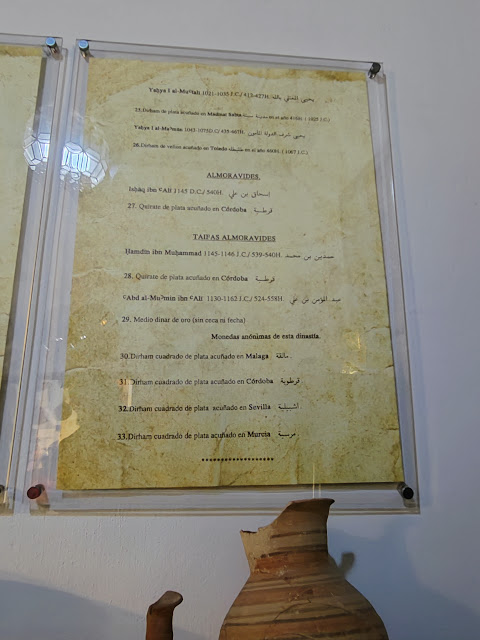 Yaḥya I al-Muᶜtali 1021-1035 J.C./ 413-427H. يحيى المعتلي بالله
25. Dirham de plata acuñado en Madinat Sabta مدينة سبتة en el año 416H. ( 1025 J.C.)
Yaḥya I al-Maᵓmun 1043-1075D.C/ 435-467H. يحيى شرف الدولة المأمون
26. Dirham de vellon acuñado en Toledo طليطلة en el año (1067 J.C.)
ALMORAVIDES.
Isḥāq ibn ᶜAlī 1145 D.C./ 540H. إسحاق بن علي
27. Quirate de plata acuñado en Córdoba قرطبة
TAIFAS ALMORAVIDES
Ḥamdīn ibn Muḥammad 1145-1146.J.C./ 539-540H. حمدين بن محمد
28. Quirate de plata acuñado en Córdoba قرطبة
ᶜAbd al-Muᵓmin ibn ᶜAlī 1130-1162 J.C./ 524-558H. عبد المؤمن بن علي
29. Medio dinar de oro (sin ceca ni fecha)
Monedas anónimas de esta dinastía.
30.Dirham cuadrado de plata acuñado en Malaga مالقة.
31.Dirham cuadrado de plata acuñado en Córdoba قرطوبة
32.Dirham cuadrado de plata acuñado en Sevilla اشبيلية.
33.Dirham cuadrado de plata acuñado en Murcia مرسية.